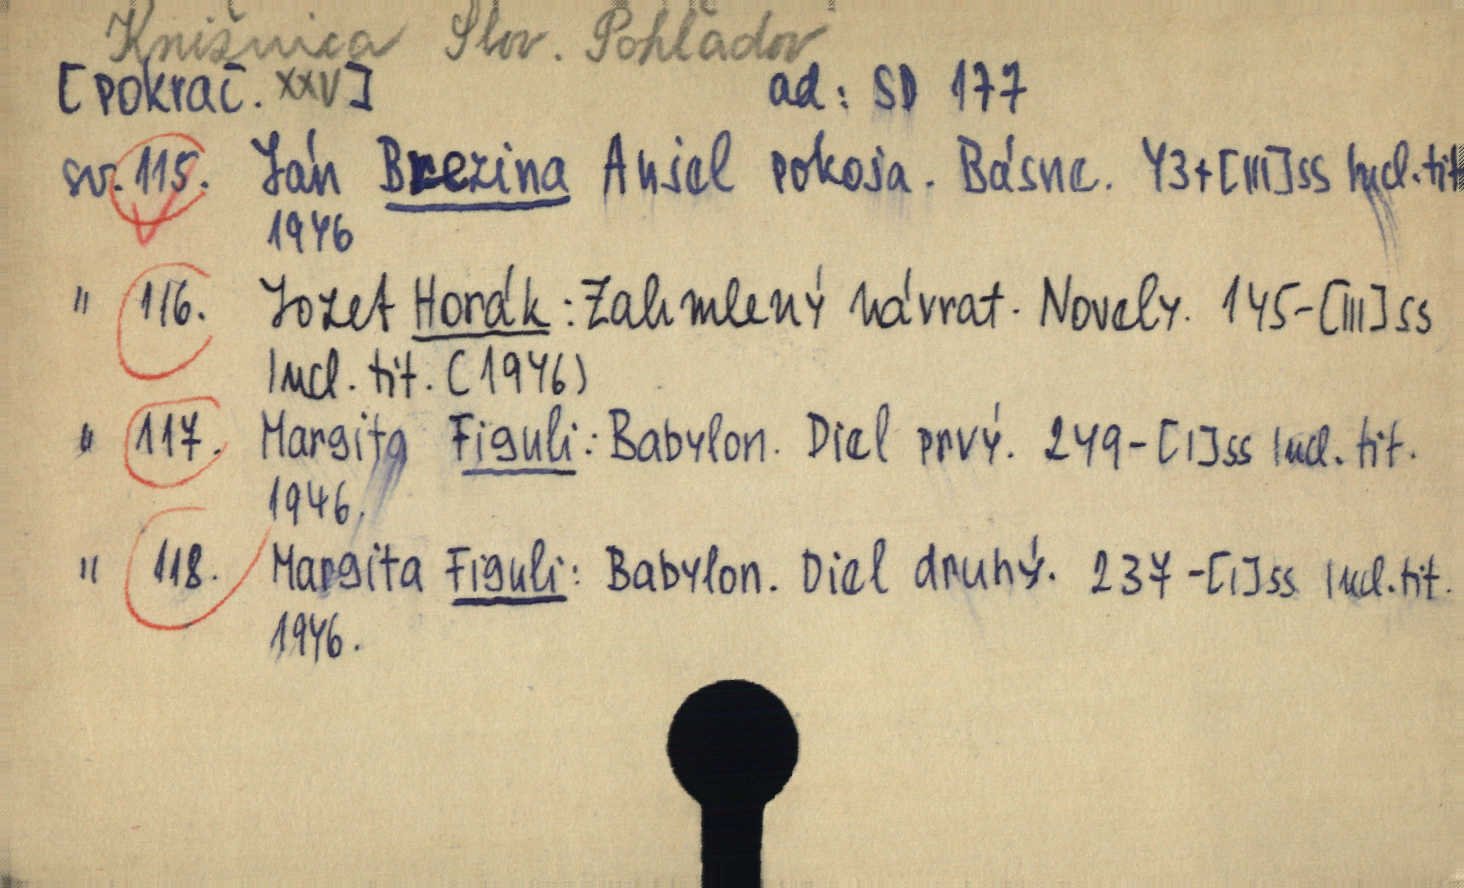 Knižnica Slov. Pohľadov
[pokrač. XXV] ad: SD 177
sv. 115. Ján Brezina Anjel pokoja. Básne. 43+[III]ss Incl. tit
1946
" 116. Jozef Horák: Zahmlený návrat. Novely. 145-[III]ss
Incl. tit. (1946)
" 117. Margita Figuli: Babylon. Diel prvý. 249-[I]ss Incl. tit.
1946.
" 118. Margita Figuli: Babylon. Diel druhý. 237-[I]ss Incl. tit.
1946.